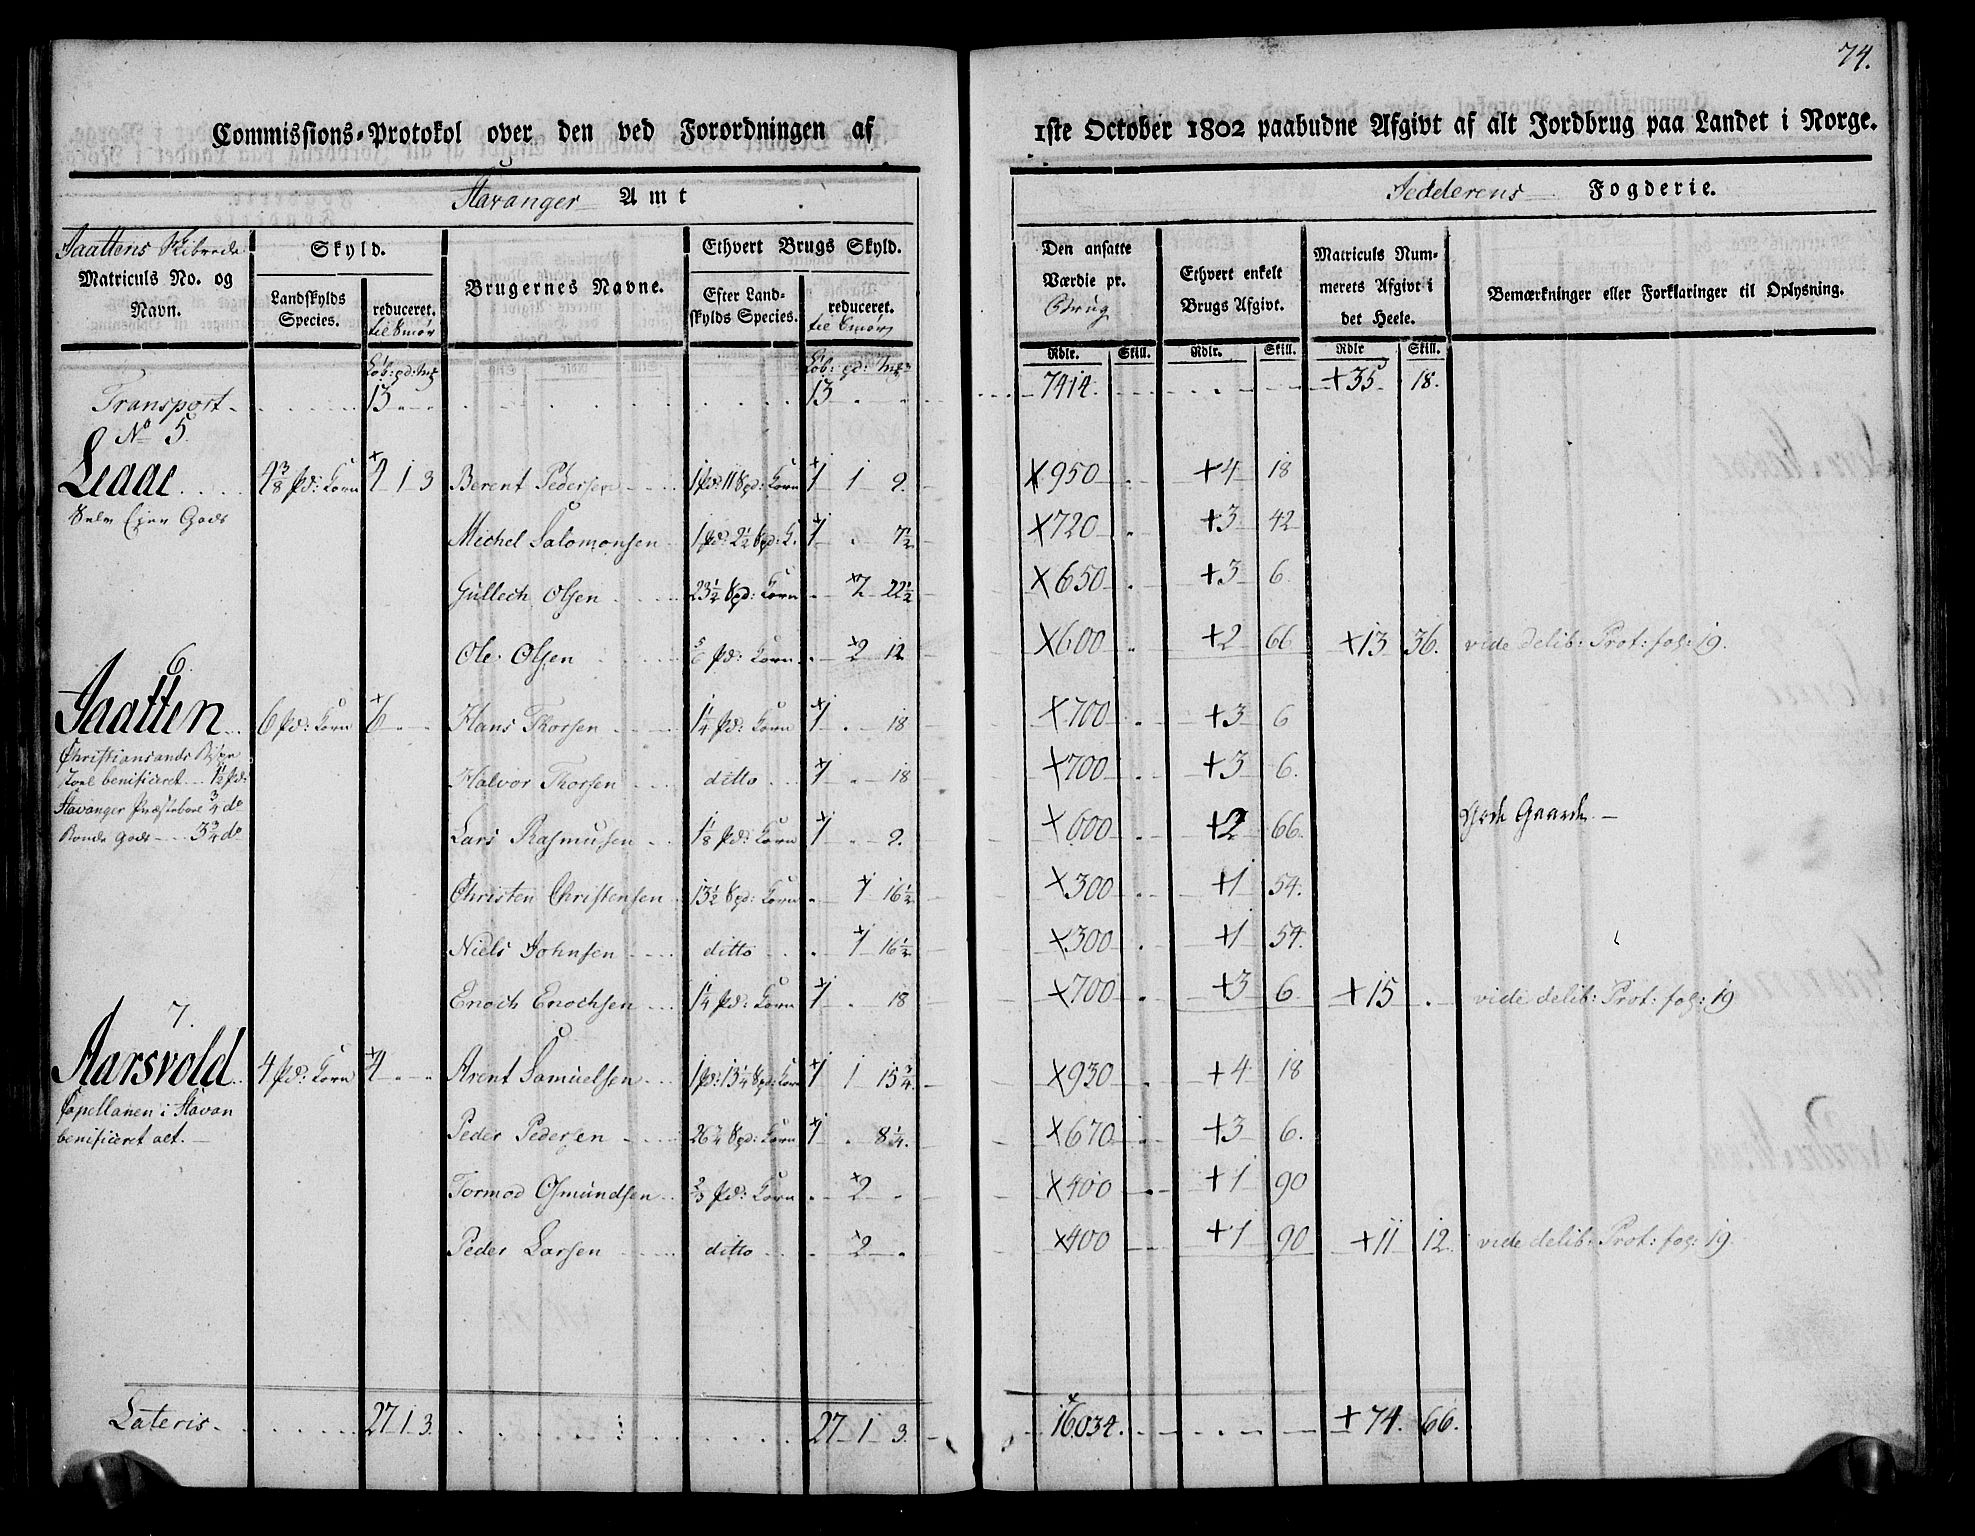 74.
Commissions-Protokol over den ved Forordningen af 1ste October 1802 paabudne Afgivt af alt Jordbrug paa Landet i Norge.
Stavanger Amt
Jedderens Fogderie.
Jaattens Skibrede
Matriculs No. og Navn.
Skyld.
Landskylds Species.
reduceret. til Smør
Brugernes Navne.
Ethvert Brugs Skyld.
Efter Landskylds Species.
reduceret. til Smør
Den ansatte Værdie pr. Brug
Ethvert enkelt Brugs Afgivt.
Matriculs Nummerets Afgivt i det Heele.
Bemærkninger eller Forklaringer til Oplysning.
Løb: pd: mk
Løb: pd: mk
Rdlr. Skill. Rdlr. Skill. Rdlr Skill.
Transport 13 13 7414. +35 18.
No 5.
4 3/8 pd: Korn 4 1 3 Berent Pedersen 1 pd: 11 Spd: Korn 1 1 9. ×950 +4 18
Michel Salomonsen 1 pd: 2 1/2 Spd: K. 1 . 7 1/2 ×720 +3 42
Gullech Olsen 23 1/4 Spd: Korn . 2 22 1/2 ×650 +3 6
Ole Olsen 5/6 pd: Korn . 2 12 ×600 +2 66 +13 36. vide delib: Prot: fol: 19.
6
Jaatten 6 pd: Korn 6 Hans Thorsen 1 1/4 pd: Korn 1 . 18 ×700 +3 6
Christiansands
benificeret 1 1/2 pd:
Halvor Thorsen ditto 1 . 18 ×700 +3 6.
Stavanger Præstebord 3/4 do
Bonde Gods 3 3/4 do
Lars Rasmusen 1 1/8 pd: Korn 1 . 9. ×600 +2 66. Gaarde
Christen Christensen 13 1/2 Spd: Korn . 1 16 1/2 ×300 +1 54.
Niels Johnsen ditto . 1 16 1/2 ×300 +1 54.
Enoch Enochsen 1 1/4 pd: Korn 1 . 18 ×700 +3 6 +15 . vide delib: Prot: fol: 19
7.
Aarsvold 4 pd: Korn 4 Arent Samuelsen 1 pd: 13 1/4 Spd: Korn 1 1 15 3/4 ×930 +4 18
Capellanen i Stavan
benificeret alt.
Peder Pedersen 26 1/4 Spd: Korn 1 . 8 1/4. ×670 +3 6.
Tormod Osmundsen 2/3 pd: Korn . 2 . ×400 +1 90
Peder Larsen ditto . 2 . ×400 +1 90 +11 12 vide delib: Prot: fol: 19.
Lateris 27 1 3. 27 1 3. 16,034. +74. 66.